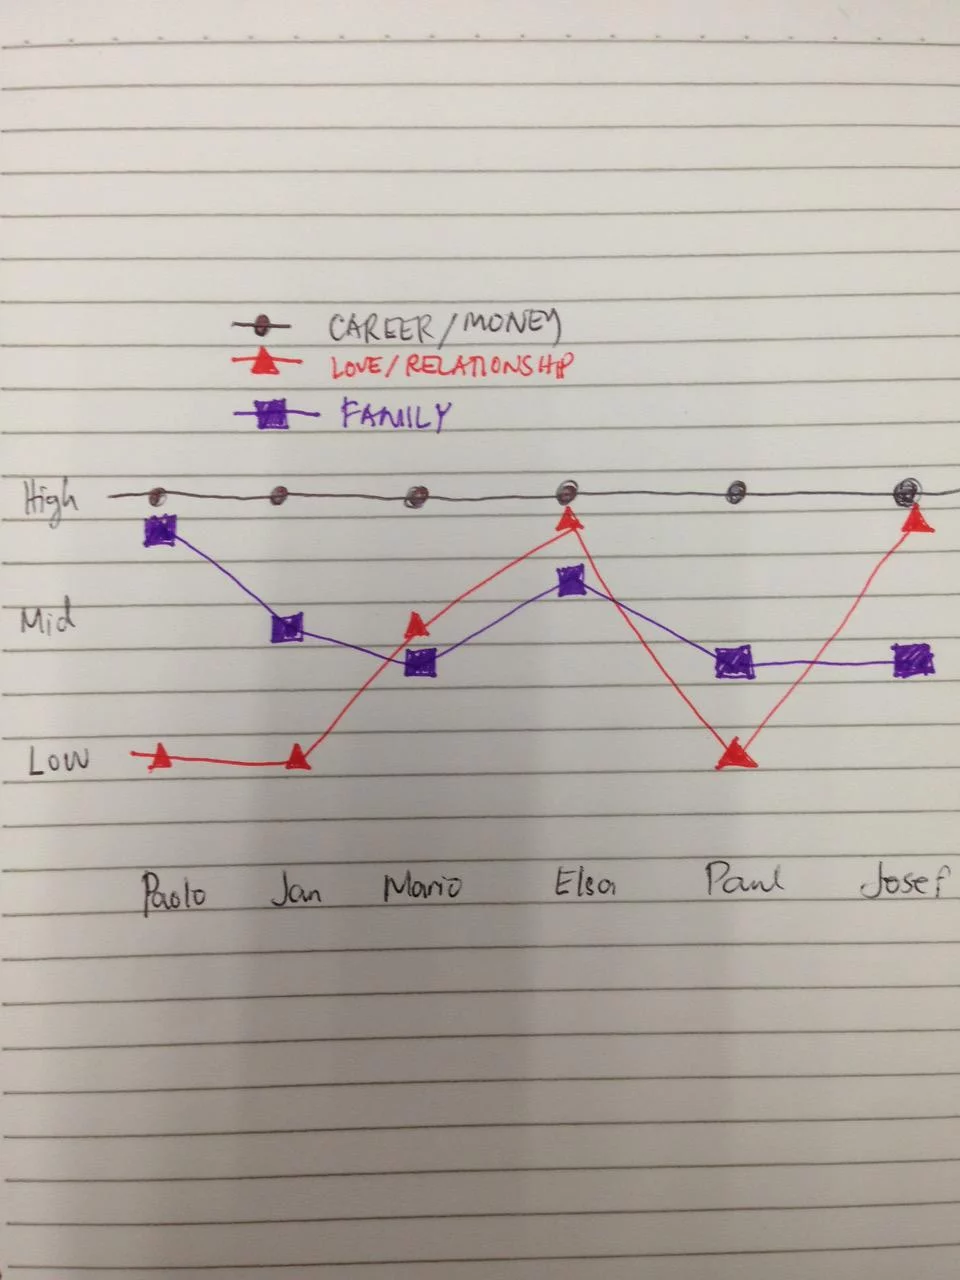 CAREER/MONEY
LOVE/RELATIONSHIP
FAMILY
High
Mid
Low
Paolo Jan Mario Elsa Paul Josef